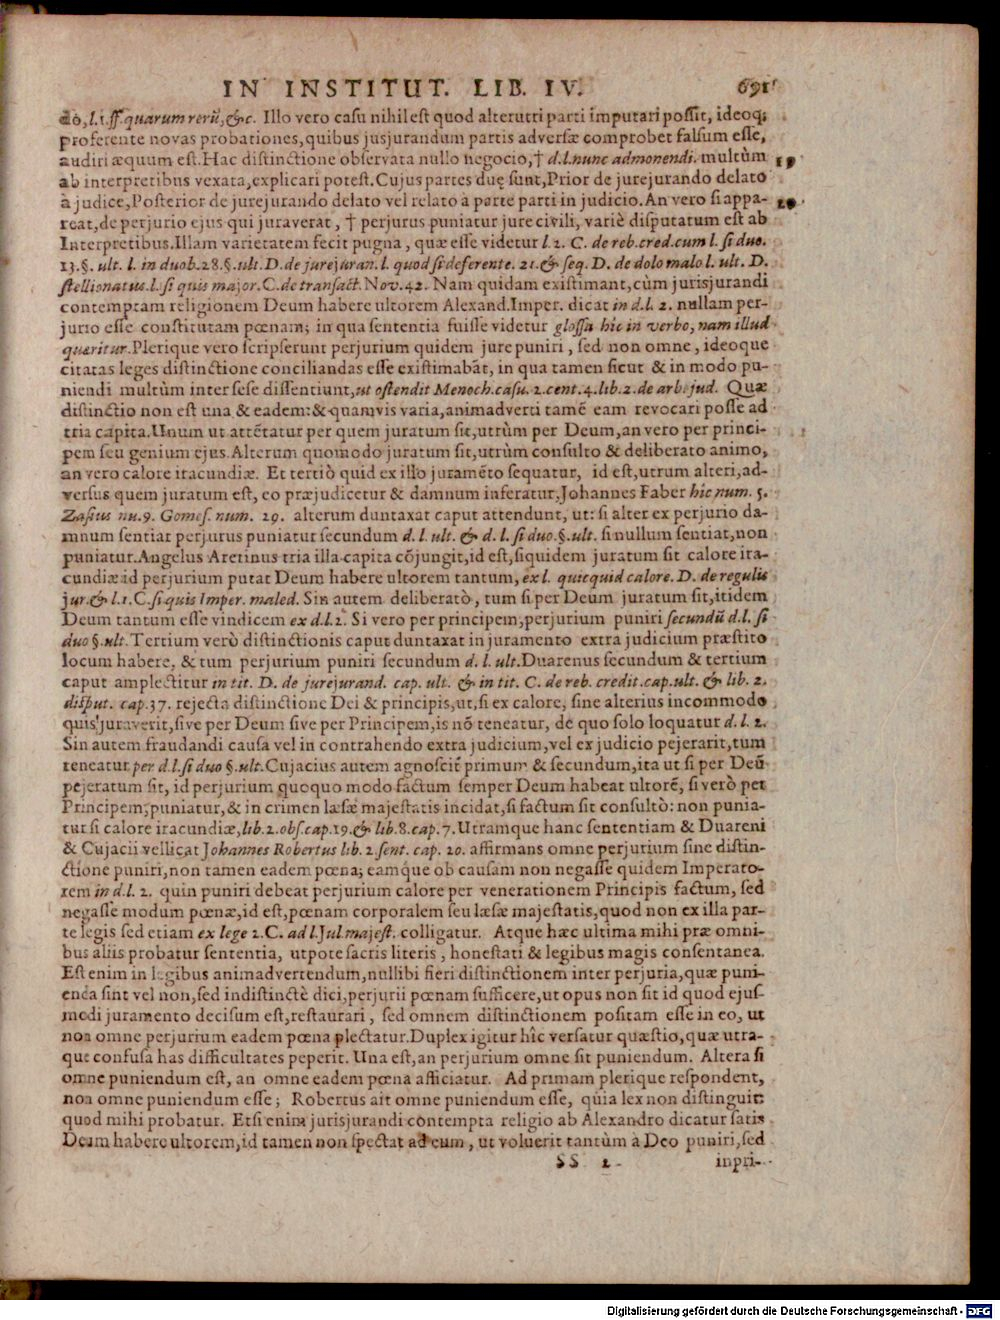 IN INSTITUT. LIB. IV. 691
dò, l. 1. ff. quarum rerū, &c. Illo vero casu nihil est quod alterutri parti imputari possit, ideoq;
proferente novas probationes, quibus jusjurandum partis adversæ comprobet falsum esse,
audiri æquum est. Hac distinctione observata nullo negocio, † d. l. nunc admonendi. multùm 19
ab interpretibus vexata, explicari potest. Cujus partes duę sunt, Prior de jurejurando delato
à judice, Posterior de jurejurando delato vel relato à parte parti in judicio. An vero si appa- 20
reat, de perjurio ejus qui juraverat, † perjurus puniatur jure civili, variè disputatum est ab
Interpretibus. Illam varietatem fecit pugna, quæ esse videtur l. 2. C. de reb. cred. cum l. si duo.
13. §. ult. l. in duob. 28. §. ult. D. de jurejuran. l. quod si deferente. 21. & seq. D. de dolo malo l. ult. D.
stellionatus. l. si quis major. C. de transact. Nov. 42. Nam quidam existimant, cùm jurisjurandi
contemptam religionem Deum habere ultorem Alexand. Imper. dicat in d. l. 2. nullam per-
jurio esse constitutam pœnam; in qua sententia fuisse videtur glossa hic in verbo, nam illud
quæritur. Plerique vero scripserunt perjurium quidem jure puniri, sed non omne, ideoque
citatas leges distinctione conciliandas esse existimabāt, in qua tamen sicut & in modo pu-
niendi multùm inter sese dissentiunt, ut ostendit Menoch. casu. 2. cent. 4. lib. 2. de arb. jud. Quæ
distinctio non est una & eadem: & quamvis varia, animadverti tamē eam revocari posse ad
tria capita. Unum ut attētatur per quem juratum sit, utrùm per Deum, an vero per princi-
pem seu genium ejus. Alterum quomodo juratum sit, utrùm consulto & deliberato animo,
an vero calore iracundiæ. Et tertiò quid ex illo juramēto sequatur, id est, utrum alteri, ad-
versus quem juratum est, eo præjudicetur & damnum inferatur, Johannes Faber hîc num. 5.
Zasius nu. 9. Gomes. num. 29. alterum duntaxat caput attendunt, ut: si alter ex perjurio da-
mnum sentiat perjurus puniatur secundum d. l. ult. & d. l. si duo. §. ult. si nullum sentiat, non
puniatur. Angelus Aretinus tria illa capita cōjungit, id est, siquidem juratum sit calore ira-
cundiæ id perjurium putat Deum habere ultorem tantum, ex l. quicquid calore. D. de regulis
jur. & l. 1. C. si quis Imper. maled. Sin autem deliberatò, tum si per Deum juratum sit, itidem
Deum tantum esse vindicem ex d. l. 2. Si vero per principem, perjurium puniri secundū d. l. si
duo §. ult. Tertium verò distinctionis caput duntaxat in juramento extra judicium præstito
locum habere, & tum perjurium puniri secundum d. l. ult. Duarenus secundum & tertium
caput amplectitur in tit. D. de jurejurand. cap. ult. & in tit. C. de reb. credit. cap. ult. & lib. 2.
disput. cap. 37. rejecta distinctione Dei & principis, ut, si ex calore, sine alterius incommodo
quis juraverit, sive per Deum sive per Principem, is nō teneatur, de quo solo loquatur d. l. 2.
Sin autem fraudandi causa vel in contrahendo extra judicium, vel ex judicio pejerarit, tum
teneatur per d. l. si duo §. ult. Cujacius autem agnoscit primum & secundum, ita ut si per Deū
pejeratum sit, id perjurium quoquo modo factum semper Deum habeat ultorē, si verò per
Principem, puniatur, & in crimen læsæ majestatis incidat, si factum sit consultò: non punia-
tur si calore iracundiæ, lib. 2. obs. cap. 19. & lib. 8. cap. 7. Utramque hanc sententiam & Duareni
& Cujacii vellicat Johannes Robertus lib. 2. sent. cap. 20. affirmans omne perjurium sine distin-
ctione puniri, non tamen eadem pœna; eamque ob causam non negasse quidem Imperato-
rem in d. l. 2. quin puniri debeat perjurium calore per venerationem Principis factum, sed
negasse modum pœnæ, id est, pœnam corporalem seu læsæ majestatis, quod non ex illa par-
te legis sed etiam ex lege 2. C. ad l. Jul. majest. colligatur. Atque hæc ultima mihi præ omni-
bus aliis probatur sententia, utpote sacris literis, honestati & legibus magis consentanea.
Est enim in legibus animadvertendum, nullibi fieri distinctionem inter perjuria, quæ puni-
enda sint vel non, sed indistinctè dici, perjurii pœnam sufficere, ut opus non sit id quod ejus-
modi juramento decisum est, restaurari, sed omnem distinctionem positam esse in eo, ut
non omne perjurium eadem pœna plectatur. Duplex igitur hîc versatur quæstio, quæ utra-
que confusa has difficultates peperit. Una est, an perjurium omne sit puniendum. Altera si
omne puniendum est, an omne eadem pœna afficiatur. Ad primam plerique respondent,
non omne puniendum esse; Robertus ait omne puniendum esse, quia lex non distinguit:
quod mihi probatur. Etsi enim jurisjurandi contempta religio ab Alexandro dicatur satis
Deum habere ultorem, id tamen non spectat ad eum, ut voluerit tantùm à Deo puniri, sed
SS 2 inpri-
Digitalisierung gefördert durch die Deutsche Forschungsgemeinschaft - DFG